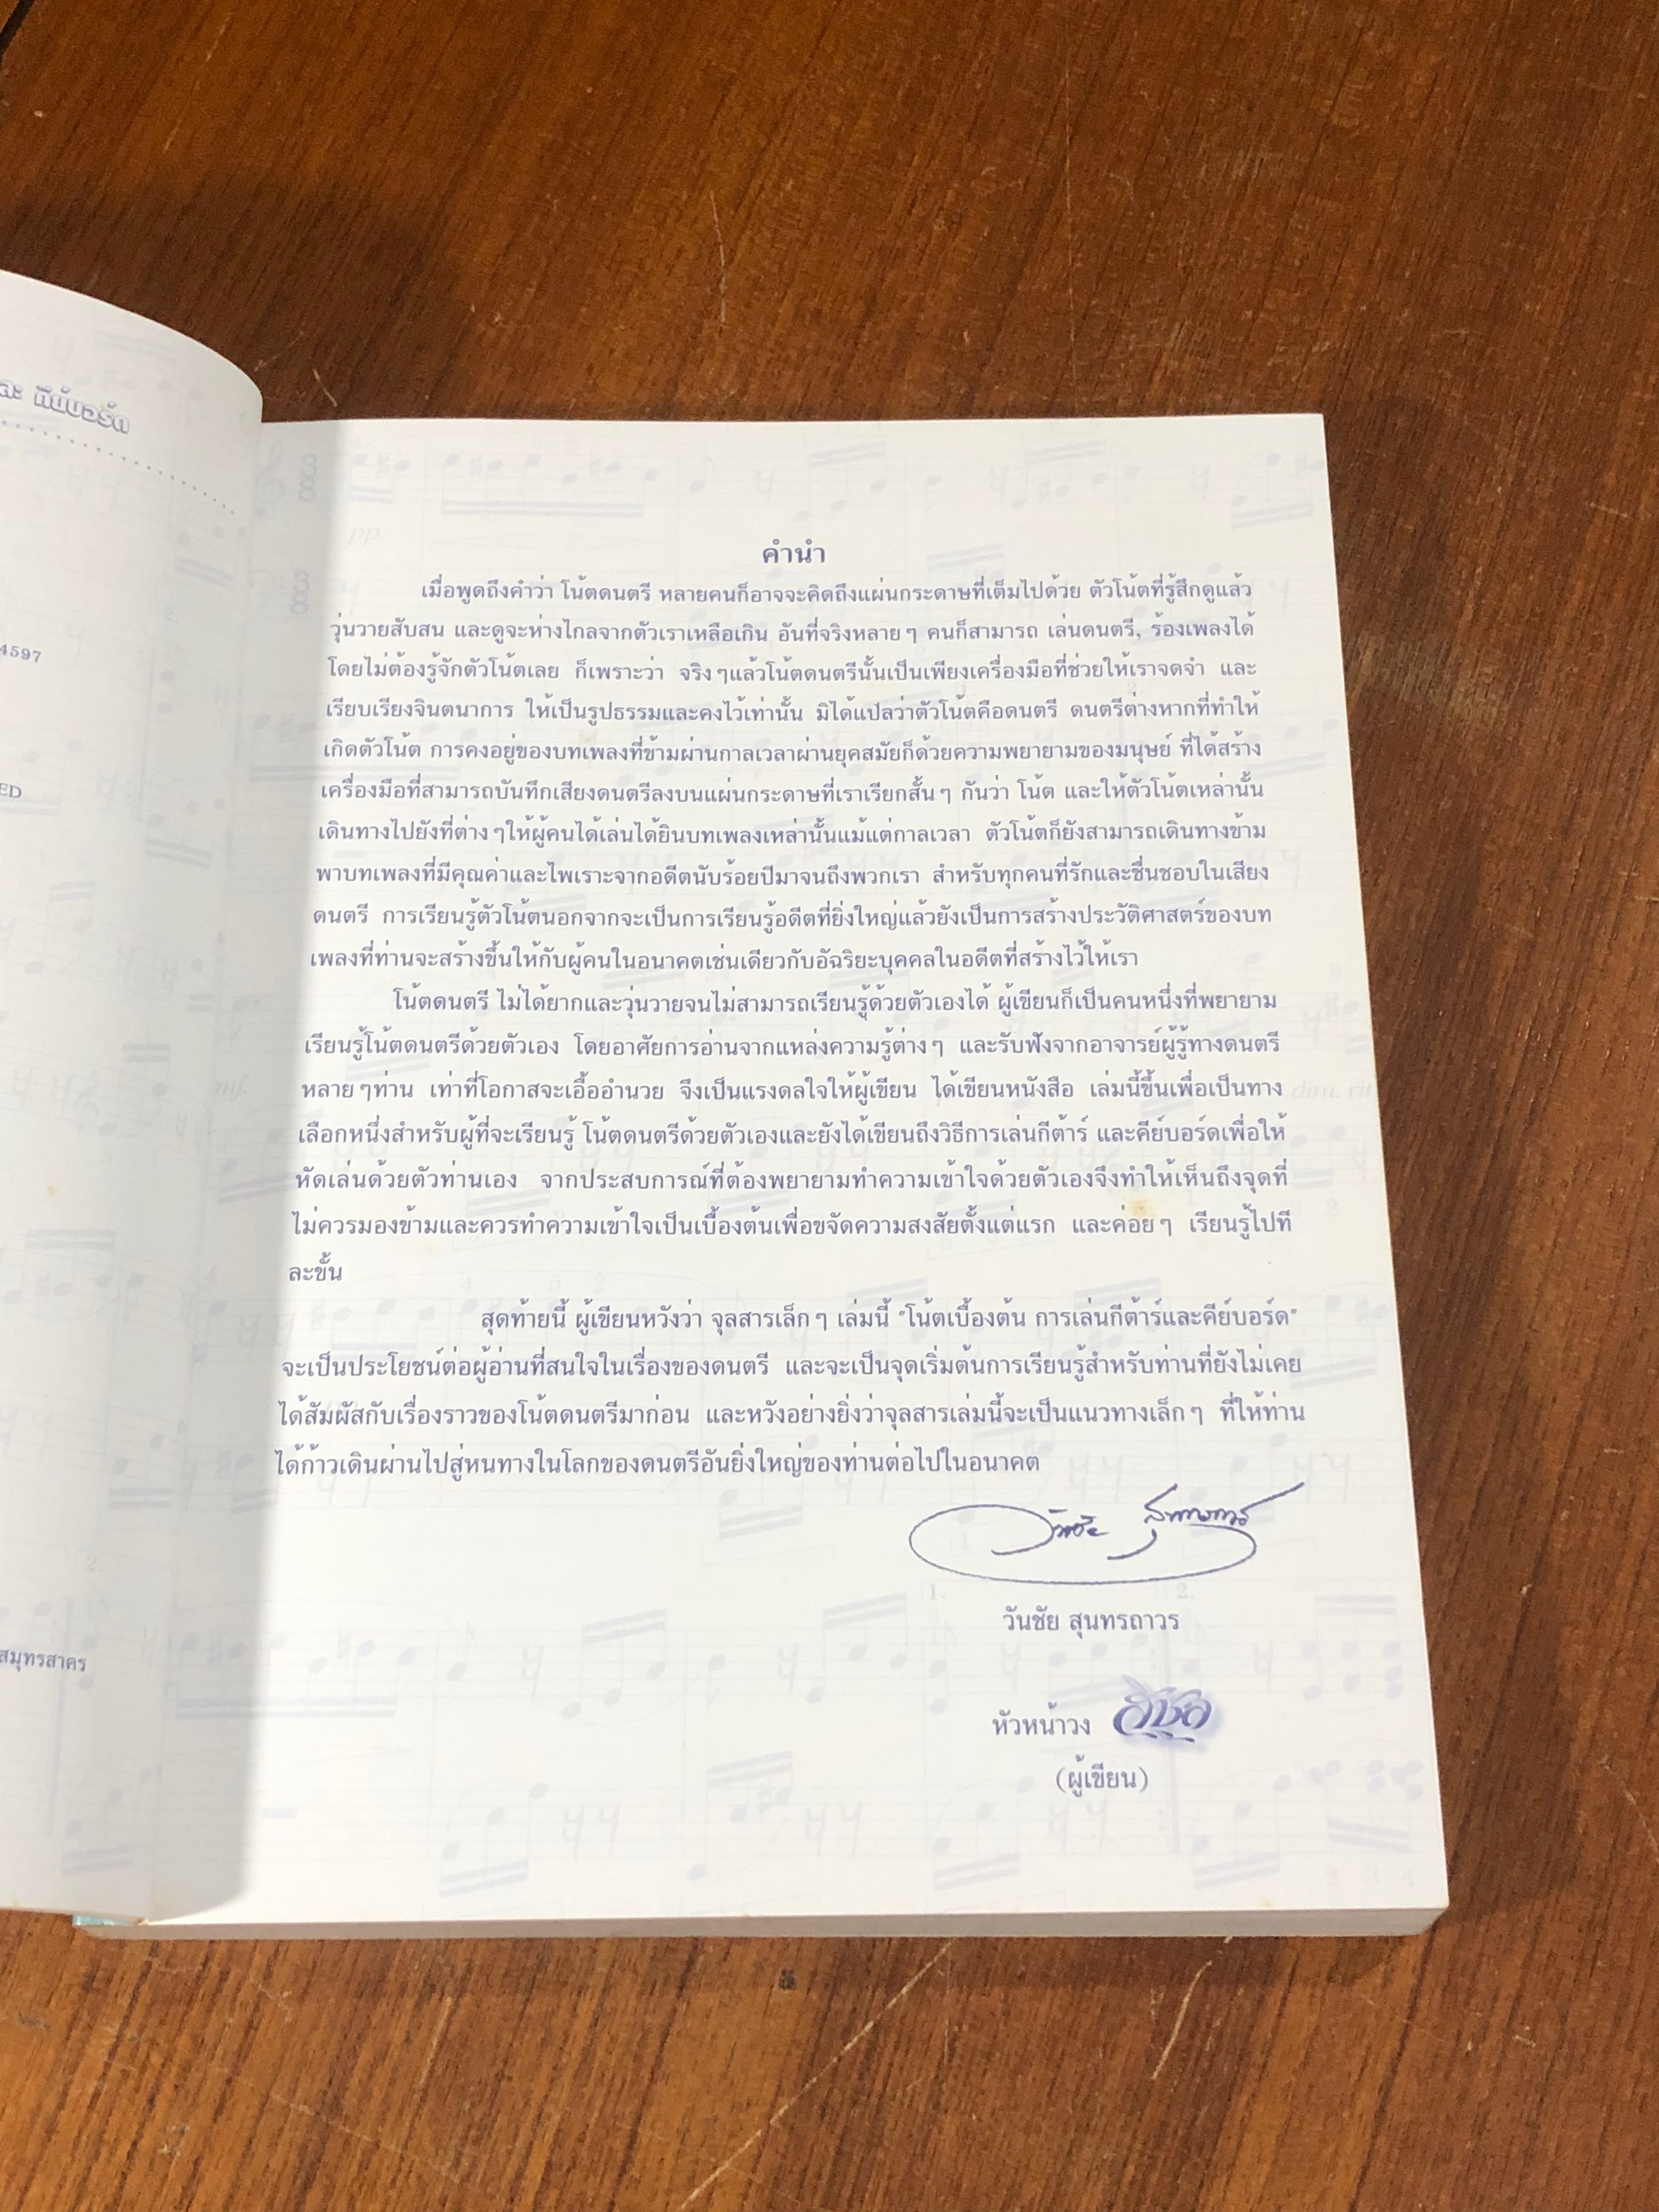 ละ คีย์บอร์ด
4597
ED
สมุทรสาคร
คำนำ
เมื่อพูดถึงคำว่า โน้ตดนตรี หลายคนก็อาจจะคิดถึงแผ่นกระดาษที่เต็มไปด้วย ตัวโน้ตที่รู้สึกดูแล้ว
วุ่นวายสับสน และดูจะห่างไกลจากตัวเราเหลือเกิน อันที่จริงหลายๆ คนก็สามารถ เล่นดนตรี, ร้องเพลงได้
โดยไม่ต้องรู้จักตัวโน้ตเลย ก็เพราะว่า จริงๆแล้วโน้ตดนตรีนั้นเป็นเพียงเครื่องมือที่ช่วยให้เราจดจำ และ
เรียบเรียงจินตนาการ ให้เป็นรูปธรรมและคงไว้เท่านั้น มิได้แปลว่าตัวโน้ตคือดนตรี ดนตรีต่างหากที่ทำให้
เกิดตัวโน้ต การคงอยู่ของบทเพลงที่ข้ามผ่านกาลเวลาผ่านยุคสมัยก็ด้วยความพยายามของมนุษย์ ที่ได้สร้าง
เครื่องมือที่สามารถบันทึกเสียงดนตรีลงบนแผ่นกระดาษที่เราเรียกสั้นๆ กันว่า โน้ต และให้ตัวโน้ตเหล่านั้น
เดินทางไปยังที่ต่างๆให้ผู้คนได้เล่นได้ยินบทเพลงเหล่านั้นแม้แต่กาลเวลา ตัวโน้ตก็ยังสามารถเดินทางข้าม
พาบทเพลงที่มีคุณค่าและไพเราะจากอดีตนับร้อยปีมาจนถึงพวกเรา สำหรับทุกคนที่รักและชื่นชอบในเสียง
ดนตรี การเรียนรู้ตัวโน้ตนอกจากจะเป็นการเรียนรู้อดีตที่ยิ่งใหญ่แล้วยังเป็นการสร้างประวัติศาสตร์ของบท
เพลงที่ท่านจะสร้างขึ้นให้กับผู้คนในอนาคตเช่นเดียวกับอัฉริยะบุคคลในอดีตที่สร้างไว้ให้เรา
โน้ตดนตรี ไม่ได้ยากและวุ่นวายจนไม่สามารถเรียนรู้ด้วยตัวเองได้ ผู้เขียนก็เป็นคนหนึ่งที่พยายาม
เรียนรู้โน้ตดนตรีด้วยตัวเอง โดยอาศัยการอ่านจากแหล่งความรู้ต่างๆ และรับฟังจากอาจารย์ผู้รู้ทางดนตรี
หลายๆท่าน เท่าที่โอกาสจะเอื้ออำนวย จึงเป็นแรงดลใจให้ผู้เขียน ได้เขียนหนังสือ เล่มนี้ขึ้นเพื่อเป็นทาง
เลือกหนึ่งสำหรับผู้ที่จะเรียนรู้ โน้ตดนตรีด้วยตัวเองและยังได้เขียนถึงวิธีการเล่นกีต้าร์ และคีย์บอร์ดเพื่อให้
หัดเล่นด้วยตัวท่านเอง จากประสบการณ์ที่ต้องพยายามทำความเข้าใจด้วยตัวเองจึงทำให้เห็นถึงจุดที่
ไม่ควรมองข้ามและควรทำความเข้าใจเป็นเบื้องต้นเพื่อขจัดความสงสัยตั้งแต่แรก และค่อยๆ เรียนรู้ไปที
ละขั้น
สุดท้ายนี้ ผู้เขียนหวังว่า จุลสารเล็กๆ เล่มนี้ "โน้ตเบื้องต้น การเล่นกีต้าร์และคีย์บอร์ด"
จะเป็นประโยชน์ต่อผู้อ่านที่สนใจในเรื่องของดนตรี และจะเป็นจุดเริ่มต้นการเรียนรู้สำหรับท่านที่ยังไม่เคย
ได้สัมผัสกับเรื่องราวของโน้ตดนตรีมาก่อน และหวังอย่างยิ่งว่าจุลสารเล่มนี้จะเป็นแนวทางเล็กๆ ที่ให้ท่าน
ได้ก้าวเดินผ่านไปสู่หนทางในโลกของดนตรีอันยิ่งใหญ่ของท่านต่อไปในอนาคต
วันชัย สุนทรถาวร
วันชัย สุนทรถาวร
หัวหน้าวง
(ผู้เขียน)